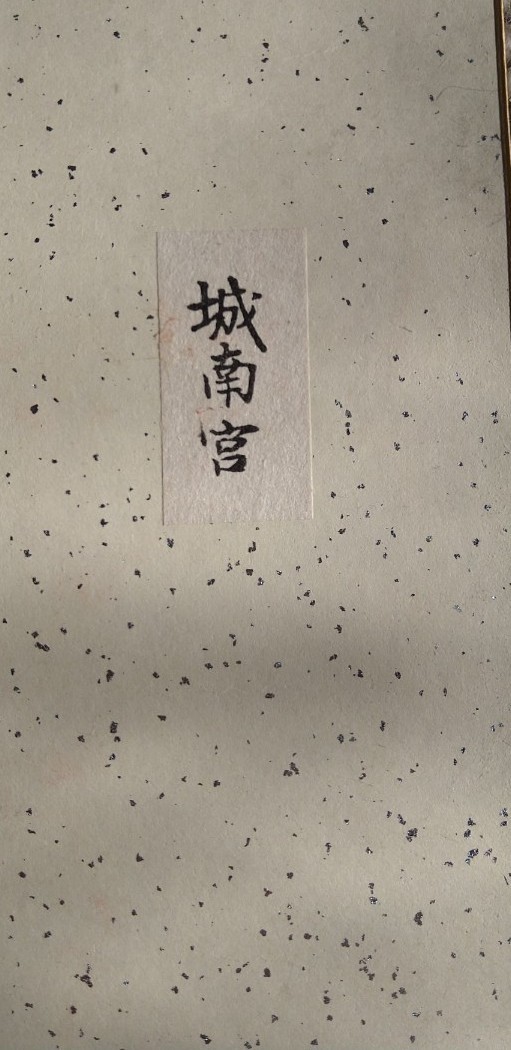 城南宮